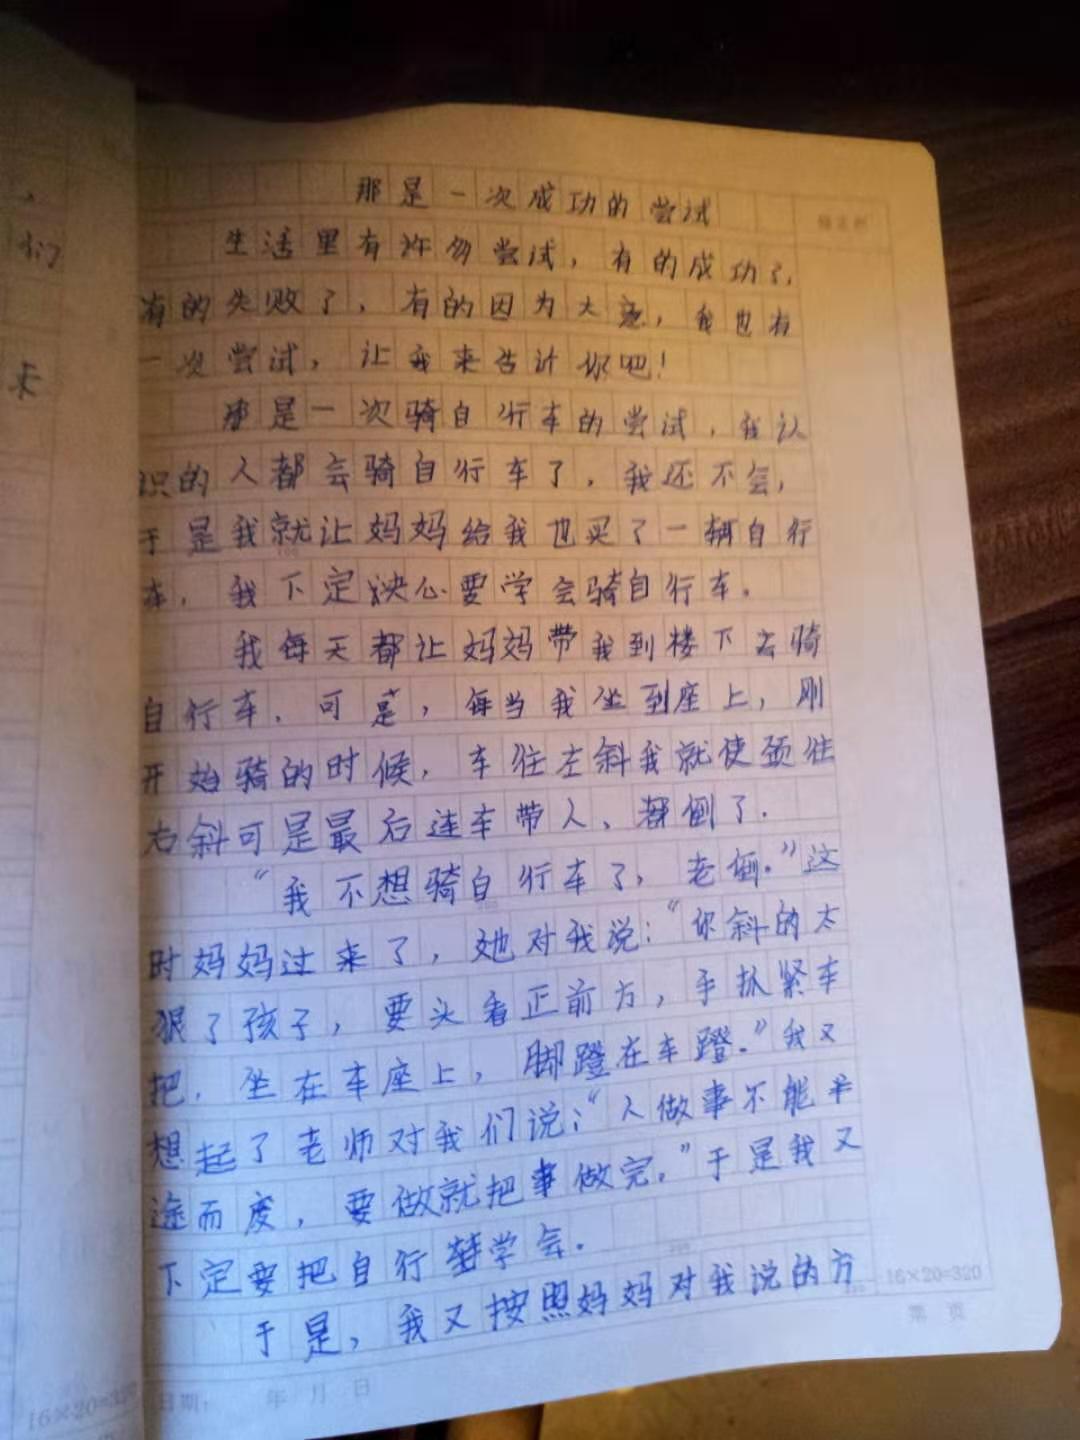 那是一次成功的尝试
生活里有许勿尝试，有的成功了，
有的失败了，有的因为大意，我也有
一次尝试，让我来告计你吧！
那是一次骑自行车的尝试，我认
识的人都会骑自行车了，我还不会，
于是我就让妈妈给我也买了一辆自行
车，我下定决心要学会骑自行车。
我每天都让妈妈带我到楼下去骑
自行车，可是，每当我坐到座上，刚
开始骑的时候，车往左斜我就使颈往
右斜可是最后连车带人、都倒了。
“我不想骑自行车了，老倒。”这
时妈妈过来了，她对我说：“你斜的太
狠了孩子，要头看正前方，手抓紧车
把，坐在车座上，脚蹬在车蹬。”我又
想起了老师对我们说：“人做事不能半
途而废，要做就把事做完。”于是我又
下定要把自行车学会。
于是，我又按照妈妈对我说的方
16×20=320
第 页
16×20=320
日期： 年 月 日